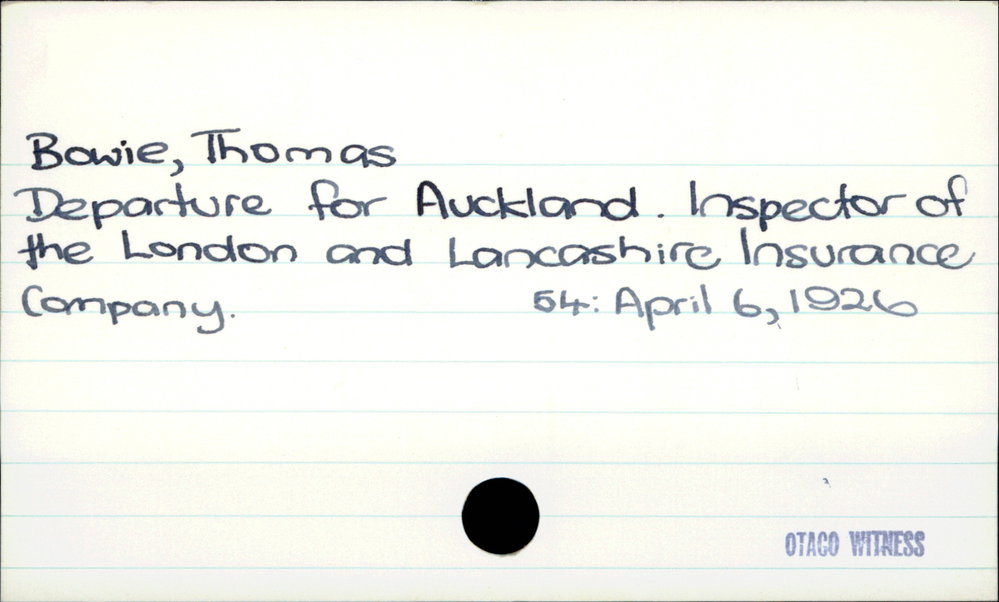 Bowie, Thomas
Departure for Auckland. Inspector of
the London and Lancashire Insurance
Company. 54: April 6, 1926
OTAGO WITNESS